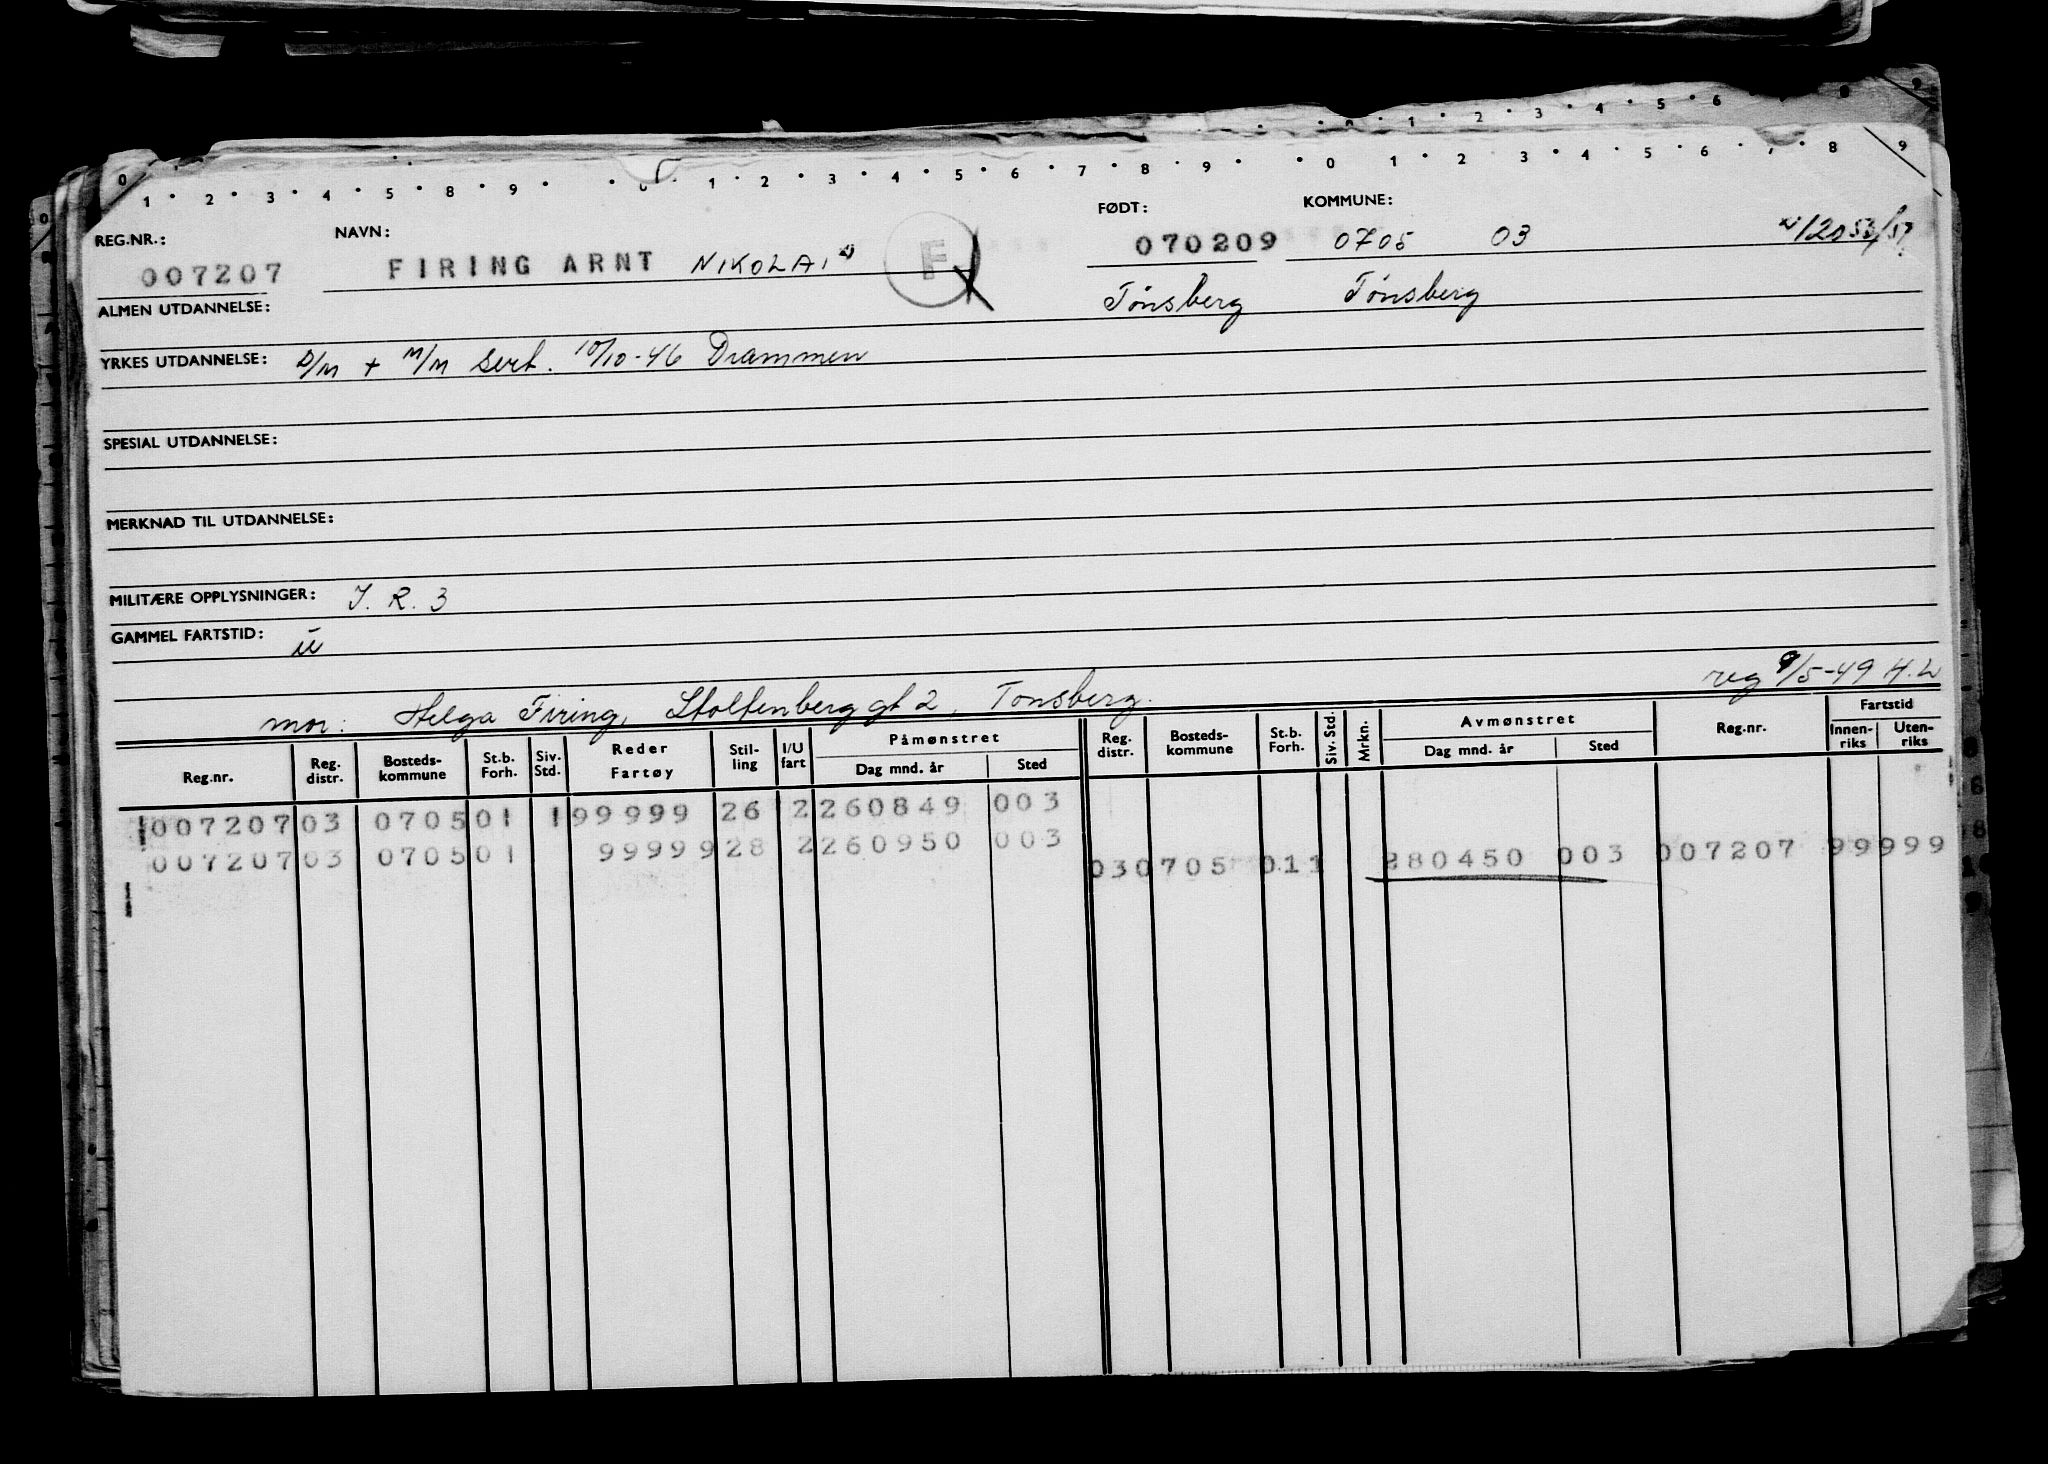 0 1 2 3 4 5 6 7 8 9 0 1 2 3 4 5 6 7 8 9 0 1 2 3 4 5 6 7 8 9
REG.NR.: NAVN: FØDT: KOMMUNE:
007207 FIRING ARNT NIKOLAI F 070209 0705 03
ALMEN UTDANNELSE: Tønsberg Tønsberg
YRKES UTDANNELSE: D/M + M/M sert. 10/10-46 Drammen
SPESIAL UTDANNELSE:
MERKNAD TIL UTDANNELSE:
MILITÆRE OPPLYSNINGER: I. R. 3
GAMMEL FARTSTID: u
reg 9/5-49 H.L
mor: Helga Firing, Stoltenberg gt 2, Tønsberg.
Reg.nr. Reg. distr. Bosteds-kommune St.b. Forh. Siv. Std. Reder Fartøy Stil-ling I/U fart Påmønstret Dag mnd. år Sted Reg. distr. Bosteds-kommune St.b. Forh. Siv. Std. Mrkn. Avmønstret Dag mnd. år Sted Reg.nr. Fartstid Innen-riks Uten-riks
007207 03 0705 01 1 99999 26 2 260849 003
007207 03 0705 01 99999 28 2 260950 003
03 0705 01 1 280450 003 007207 99999